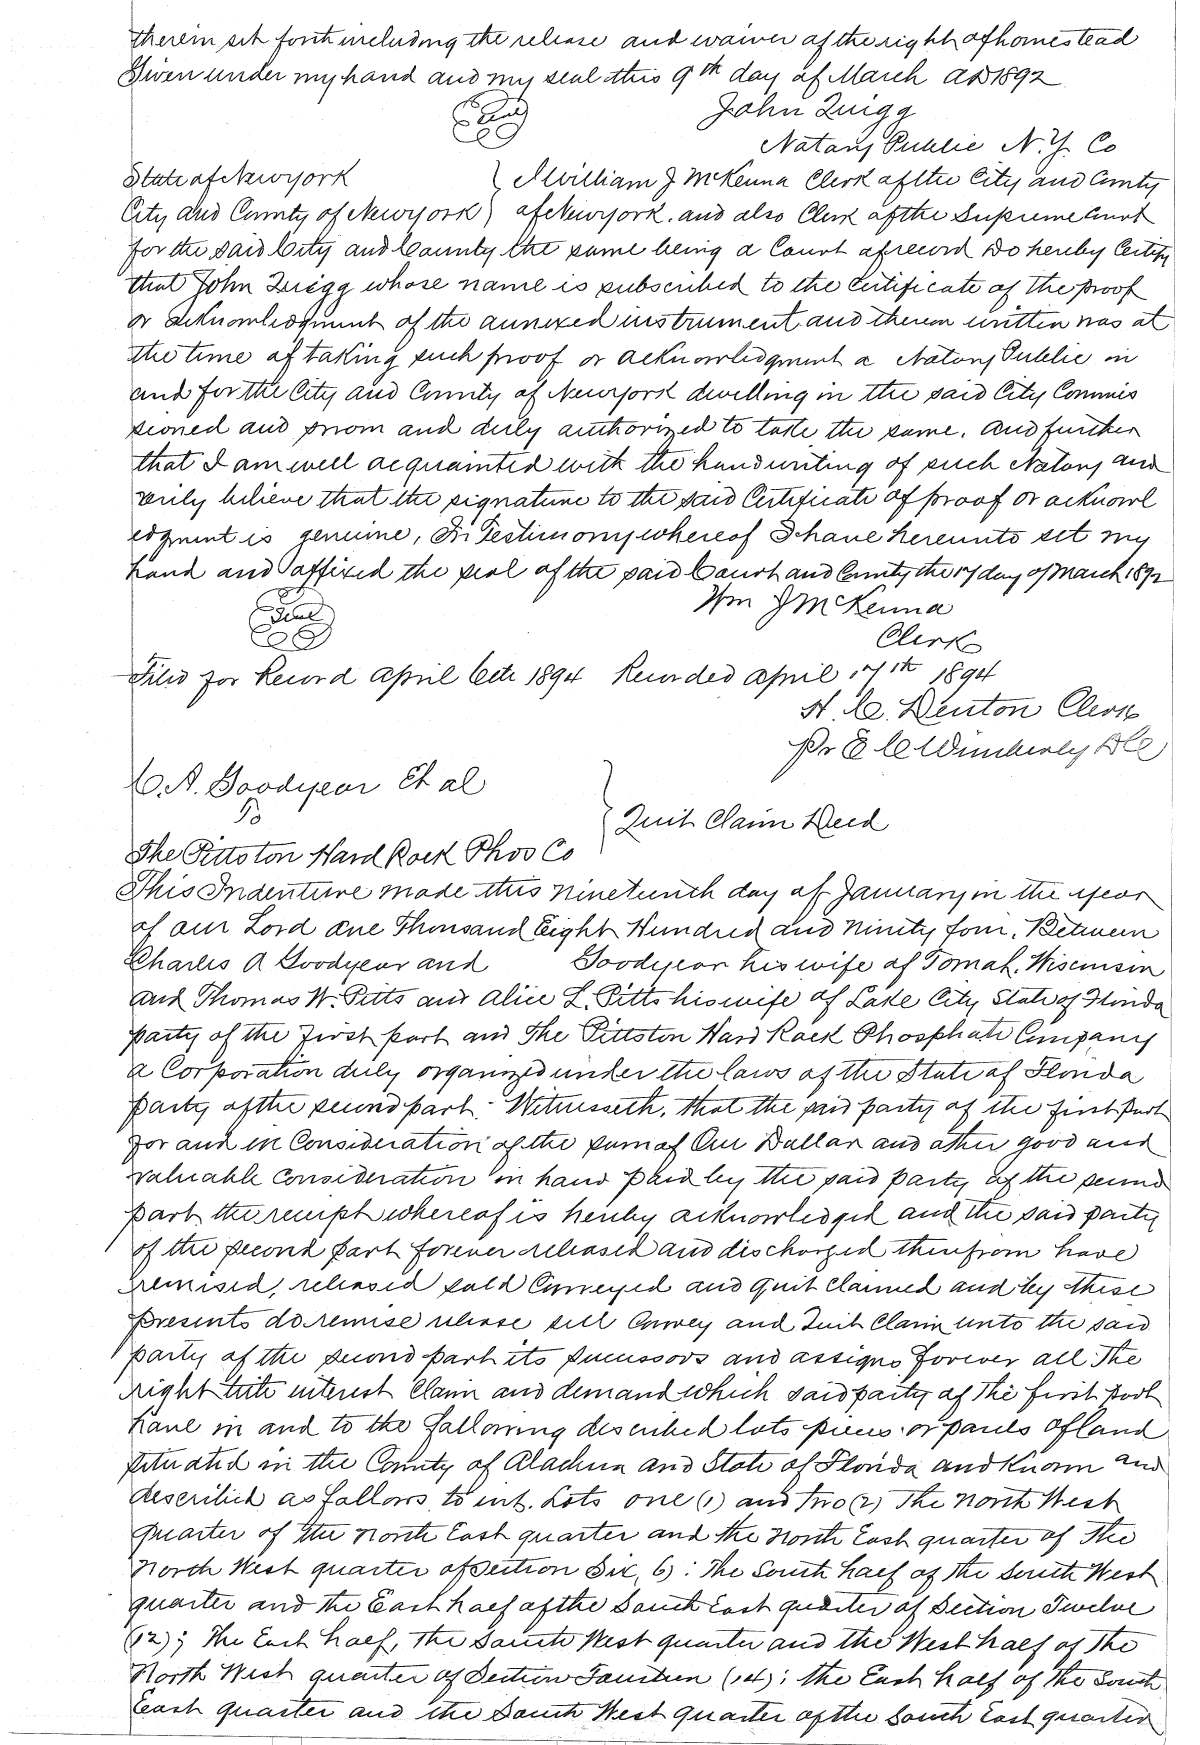 therein set forth including the release and waiver of the right of homestead
Given under my hand and my seal this 9th day of March AD 1892
Seal
John Quigg
Notary Public N.Y. Co
State of New york } I William J McKenna Clerk of the City and County
City and County of New york } of New york. and also Clerk of the Supreme Court
for the said City and County the same being a Court of record Do hereby Certify
that John Quigg whose name is subscribed to the Certificate of the proof
or acknowledgment of the annexed instrument and thereon written was at
the time of taking such proof or acknowledgment a Notary Public in
and for the City and County of New york dwelling in the said City Commis
sioned and sworn and duly authorized to take the same. And further
that I am well acquainted with the handwriting of such Notary and
verily believe that the signature to the said Certificate of proof or acknowl
edgment is genuine, In Testimony whereof I have hereunto set my
hand and affixed the seal of the said Court and County the 17 day of March 1892
Wm J McKenna
Seal
Clerk
Filed for Record April 6th 1894 Recorded April 17th 1894
H. C. Denton Clerk
Pr E C Wimberly DC
C. A. Goodyear Et al
To
} Quit Claim Deed
The Pittston Hard Rock Phos Co
This Indenture made this nineteenth day of January in the year
of our Lord one Thousand Eight Hundred and Ninety four. Between
Charles A Goodyear and Goodyear his wife of Tomah, Wisconsin
and Thomas W. Pitts and Alice L. Pitts his wife of Lake City State of Florida
party of the first part and The Pittston Hard Rock Phosphate Company
a Corporation duly organized under the laws of the State of Florida
party of the second part. Witnesseth, that the said party of the first part
for and in Consideration of the sum of One Dollar and other good and
valuable Consideration in hand paid by the said party of the second
part the receipt whereof is hereby acknowledged and the said party
of the second part forever released and discharged therefrom have
remised, released sold Conveyed and quit claimed and by these
presents do remise release sell Convey and Quit Claim unto the said
party of the second part its successors and assigns forever all The
right title interest Claim and demand which said party of the first part
have in and to the following described lots pieces or parcels of land
situated in the County of Alachua and State of Florida and Known and
described as follows, to wit. Lots one (1) and two (2) The North West
quarter of the North East quarter and the North East quarter of The
North West quarter of Section Six, 6) : The South half of the South West
quarter and the East half of the South East quarter of Section Twelve
(12) ; The East half, the South West quarter and the West half of The
North West quarter of Section Fourteen (14) : the East half of the South
East quarter and the South West quarter of the South East quarter